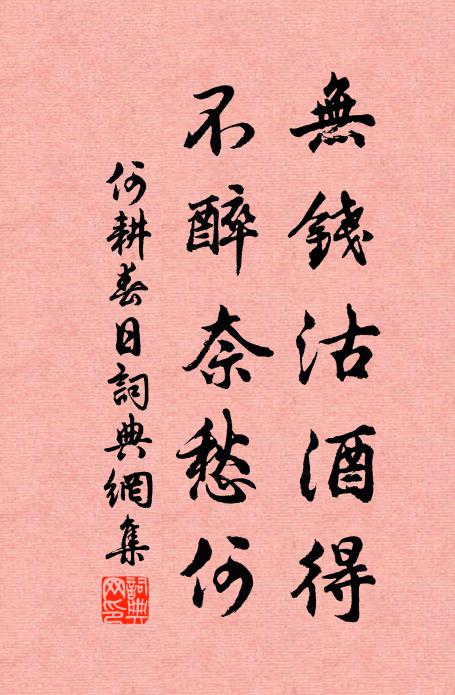 無錢沽酒得
不醉奈愁何
何耕春日詞典網集
詞典網印